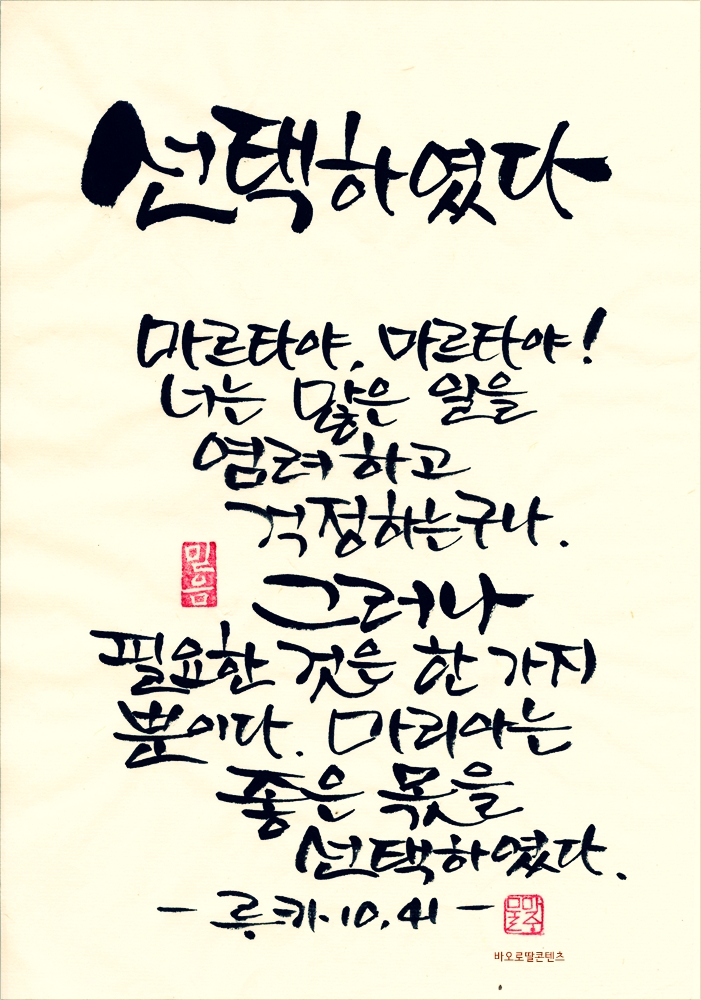 선택하였다
마르타야, 마르타야!
너는 많은 일을
염려하고
걱정하는구나.
믿음
그러나
필요한 것은 한 가지
뿐이다. 마리아는
좋은 몫을
선택하였다.
- 루카.10,41 -
바오로딸콘텐츠